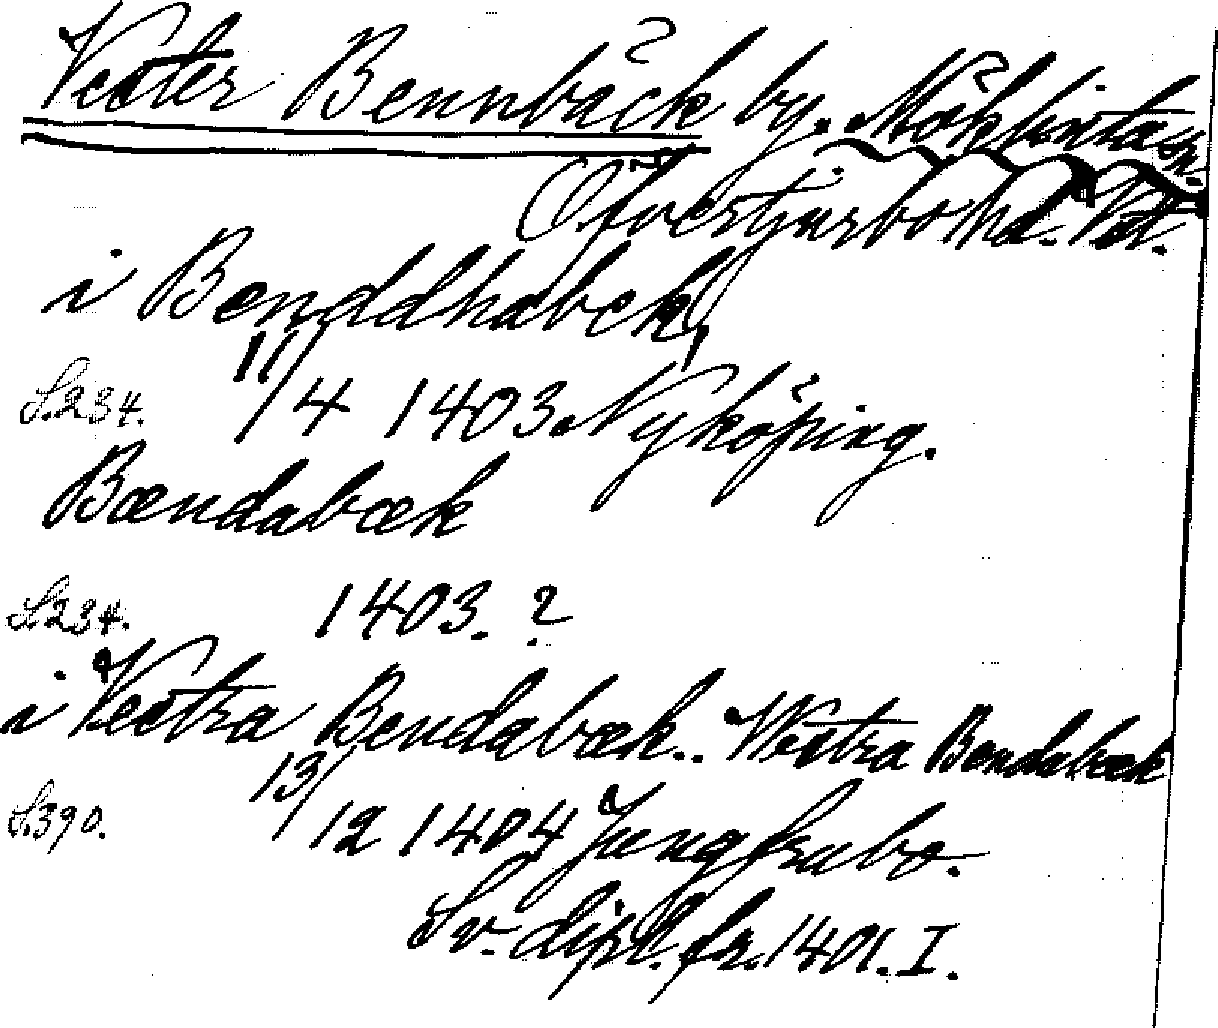 Vester Bennbäck by. Möklinta sn.
Öfvertjurbo hd. Vstl.
i Benddhabek,
S.234. 11/4 1403. Nyköping.
Bændabæk
S.234. 1403. ?
i Vestra Bendabæk.. Vestra Bendabæk
S.390. 13/12 1404 Jungfrubo.
Sv. dipl. fr. 1401. I.